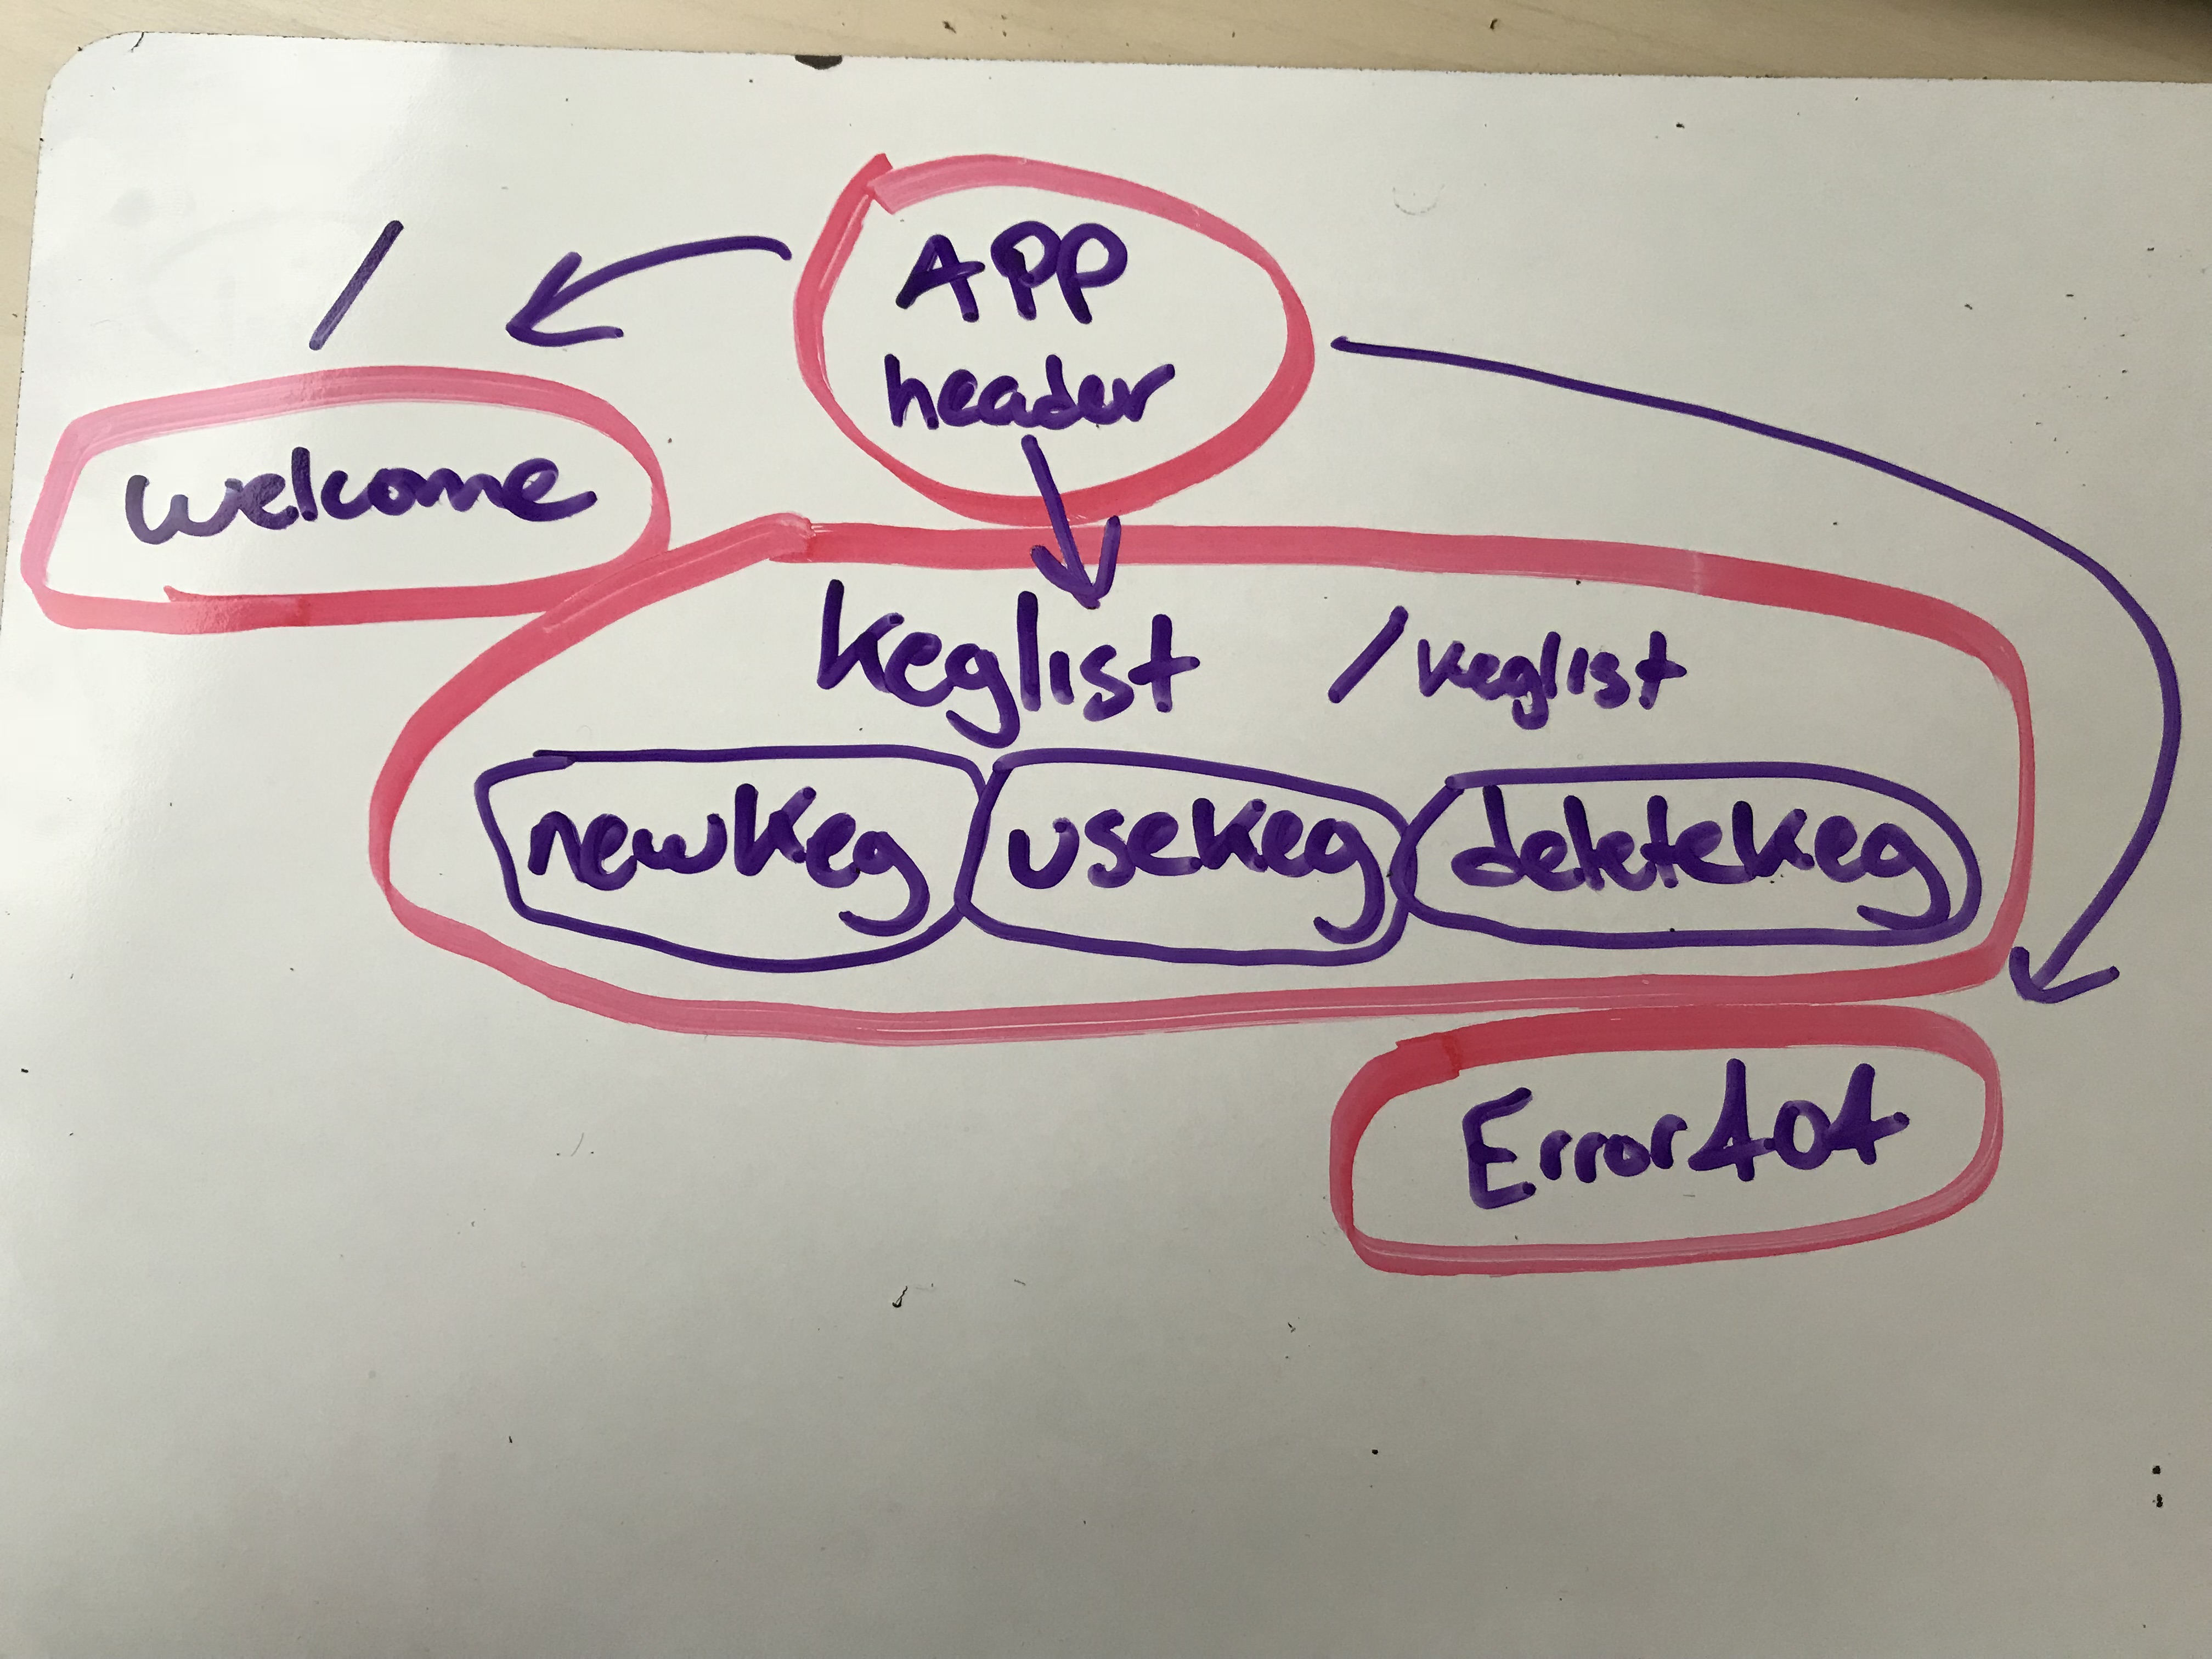 /
APP
header
welcome
keglist /keglist
newKeg useKeg deleteKeg
Error404